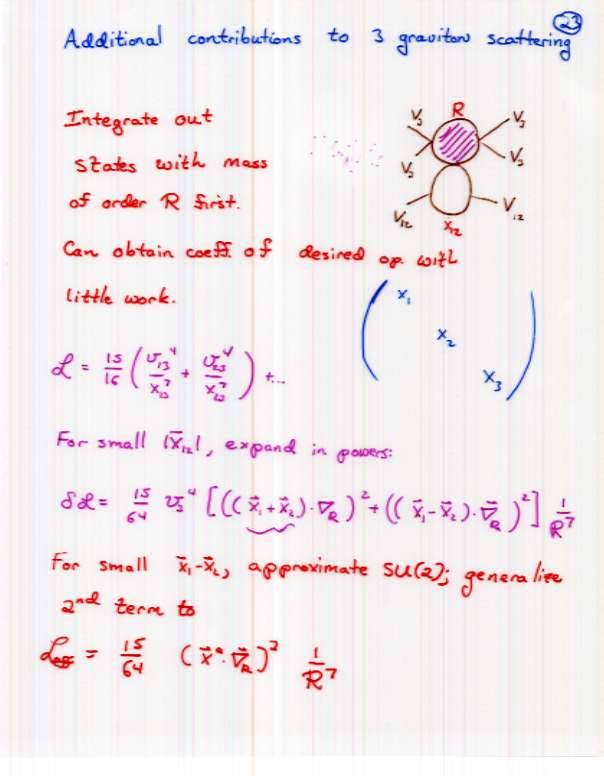 23
Additional contributions to 3 graviton scattering
Integrate out
states with mass
of order R first.
R
V₃ V₃
V₃ V₃
V₁₂ V₁₂
x₁₂
Can obtain coeff. of desired op. with
little work.
x₁
x₂
x₃
ℒ = 15/16 ( v₁₃⁴/x₁₃⁷ + v₂₃⁴/x₂₃⁷ ) + ...
For small |x⃗₁₂|, expand in powers:
δℒ = 15/64 v₃⁴ [((x⃗₁+x⃗₂)·∇⃗_R)² + ((x⃗₁-x⃗₂)·∇⃗_R)²] 1/R⁷
For small x⃗₁-x⃗₂, approximate SU(2); generalize
2nd term to
ℒeff = 15/64 (x⃗ᵃ·∇⃗_R)² 1/R⁷